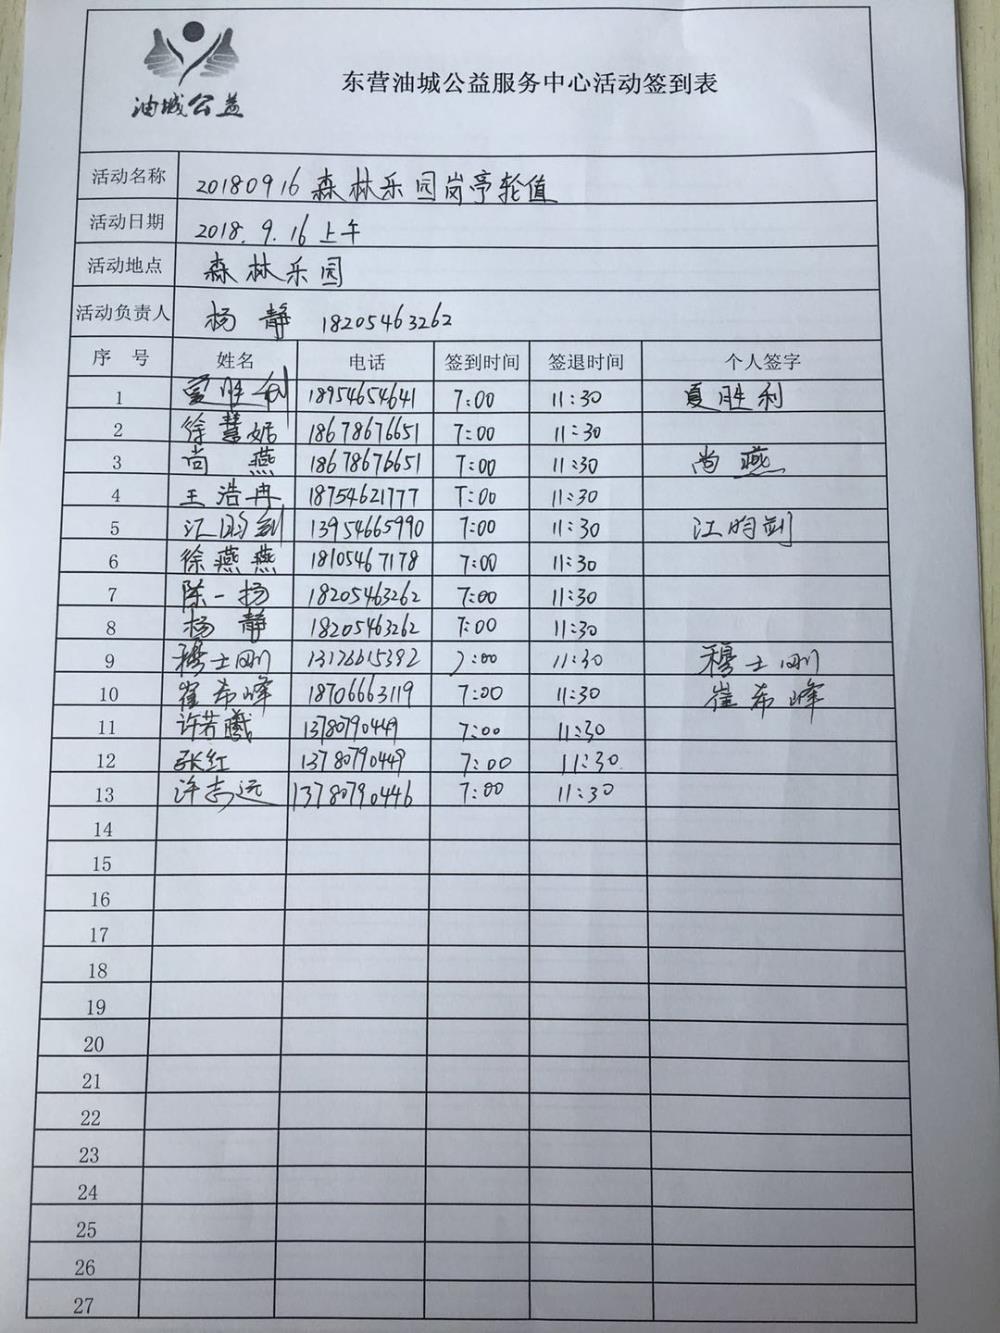 油城公益
东营油城公益服务中心活动签到表
活动名称 20180916 森林乐园岗亭轮值
活动日期 2018.9.16 上午
活动地点 森林乐园
活动负责人 杨静 18205463262
序号 姓名 电话 签到时间 签退时间 个人签字
1 夏胜利 18954654641 7:00 11:30 夏胜利
2 徐慧妮 18678676651 7:00 11:30
3 尚燕 18678676651 7:00 11:30 尚燕
4 王浩冉 18754621777 7:00 11:30
5 江昀剑 13954665990 7:00 11:30 江昀剑
6 徐燕燕 18105467178 7:00 11:30
7 陈一扬 18205463262 7:00 11:30
8 杨静 18205463262 7:00 11:30
9 穆士刚 13176615392 7:00 11:30 穆士刚
10 崔希峰 18706663119 7:00 11:30 崔希峰
11 许若曦 13780790449 7:00 11:30
12 张红 13780790449 7:00 11:30
13 许志远 13780790446 7:00 11:30
14
15
16
17
18
19
20
21
22
23
24
25
26
27